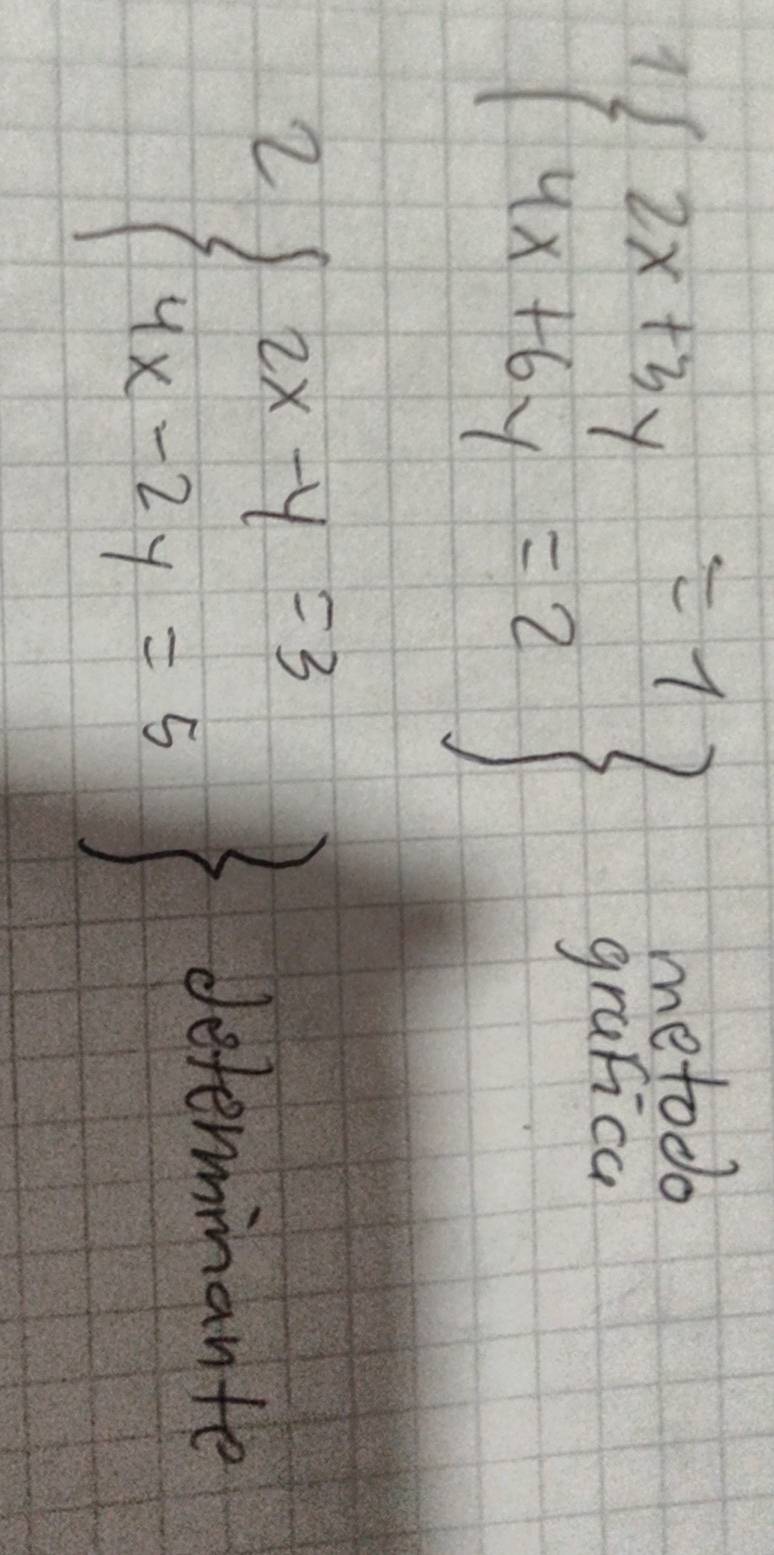 1{ 2x + 3y = 1
4x + 6y = 2 }
metodo
grafica
2 { 2x - y = 3
4x - 2y = 5 }
determinante